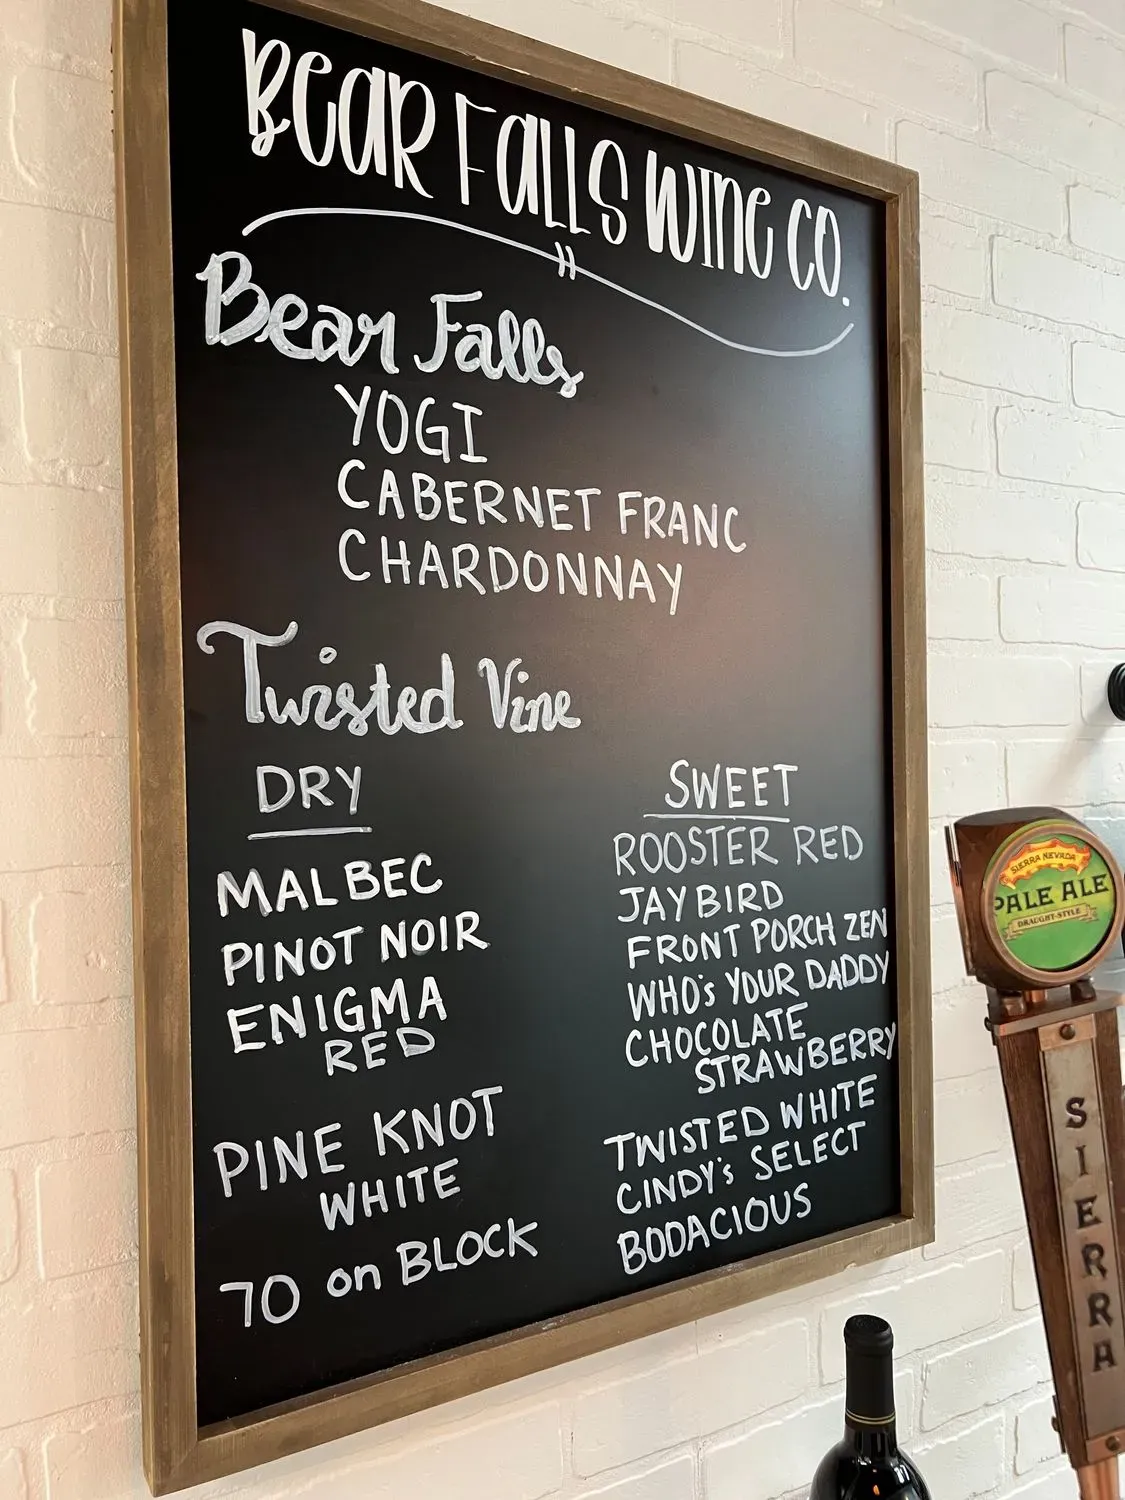 BEAR FALLS WINE CO.
Bear Falls
YOGI
CABERNET FRANC
CHARDONNAY
Twisted Vine
DRY
MALBEC
PINOT NOIR
ENIGMA
RED
PINE KNOT
WHITE
70 on BLOCK
SWEET
ROOSTER RED
JAYBIRD
FRONT PORCH ZEN
WHO's YOUR DADDY
CHOCOLATE
STRAWBERRY
TWISTED WHITE
CINDY's SELECT
BODACIOUS
SIERRA NEVADA
PALE ALE
DRAUGHT-STYLE
SIERRA